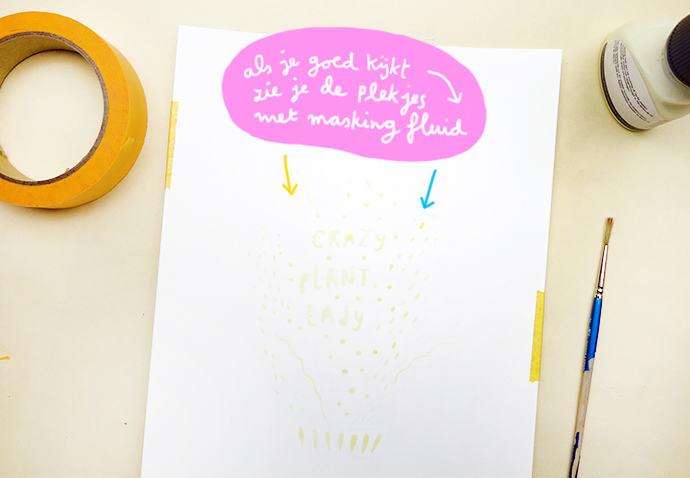 als je goed kijkt
zie je de plekjes
met masking fluid
CRAZY
PLANT
Lady